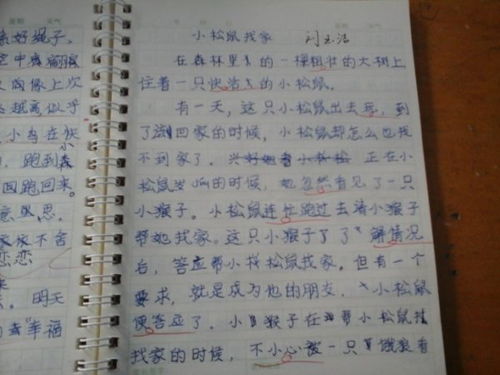 亲好绳子。
小松鼠找家 刘玉洁
在森林里的一棵粗壮的大树上
住着一只快活的小松鼠。
有一天，这只小松鼠出去玩，到
了回家的时候，小松鼠却怎么也找
不到家了。正在小
松鼠发愁的时候，她忽然看见了一只
小猴子。小松鼠连忙跑过去请小猴子
帮她找家。这只小猴子了了解情况
后，答应帮小松鼠找家。但有一个
要求，就是成为他的朋友，小松鼠
便答应了。小猴子在帮小松鼠找
找家的时候，不小心被一只饿狼看
空中
次偶像上次
越离似乎
小鸟在伙
跑到森
回跑回来。
意思。
家不舍
恋恋
来
明天
幸福